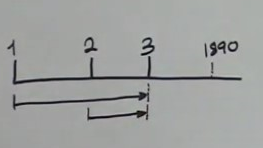 1 2 3 1890